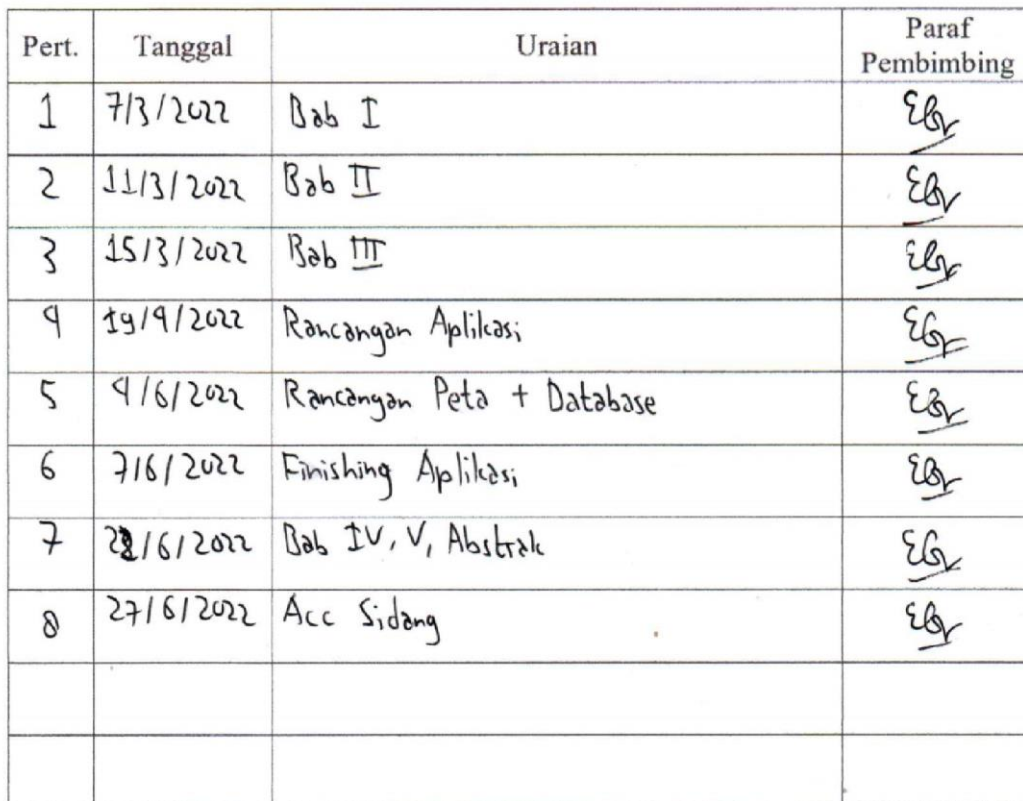 Pert. Tanggal Uraian Paraf Pembimbing
1 7/3/2022 Bab I
2 11/3/2022 Bab II
3 15/3/2022 Bab III
4 19/4/2022 Rancangan Aplikasi
5 4/6/2022 Rancangan Peta + Database
6 7/6/2022 Finishing Aplikasi
7 /6/2022 Bab IV, V, Abstrak
8 27/6/2022 Acc Sidang